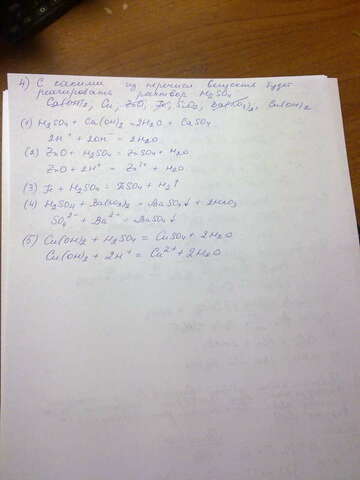 4) С какими из перечисл. веществ будет
реагировать раствор H₂SO₄
Ca(OH)₂, Cu, ZnO, Fe, SiO₂, Ba(NO₃)₂, Cu(OH)₂
(1) H₂SO₄ + Ca(OH)₂ = 2H₂O + CaSO₄
2H⁺ + 2OH⁻ = 2H₂O
(2) ZnO + H₂SO₄ = ZnSO₄ + H₂O
ZnO + 2H⁺ = Zn²⁺ + H₂O
(3) Fe + H₂SO₄ = FeSO₄ + H₂↑
(4) H₂SO₄ + Ba(NO₃)₂ = BaSO₄↓ + 2HNO₃
SO₄²⁻ + Ba²⁺ = BaSO₄↓
(5) Cu(OH)₂ + H₂SO₄ = CuSO₄ + 2H₂O
Cu(OH)₂ + 2H⁺ = Cu²⁺ + 2H₂O